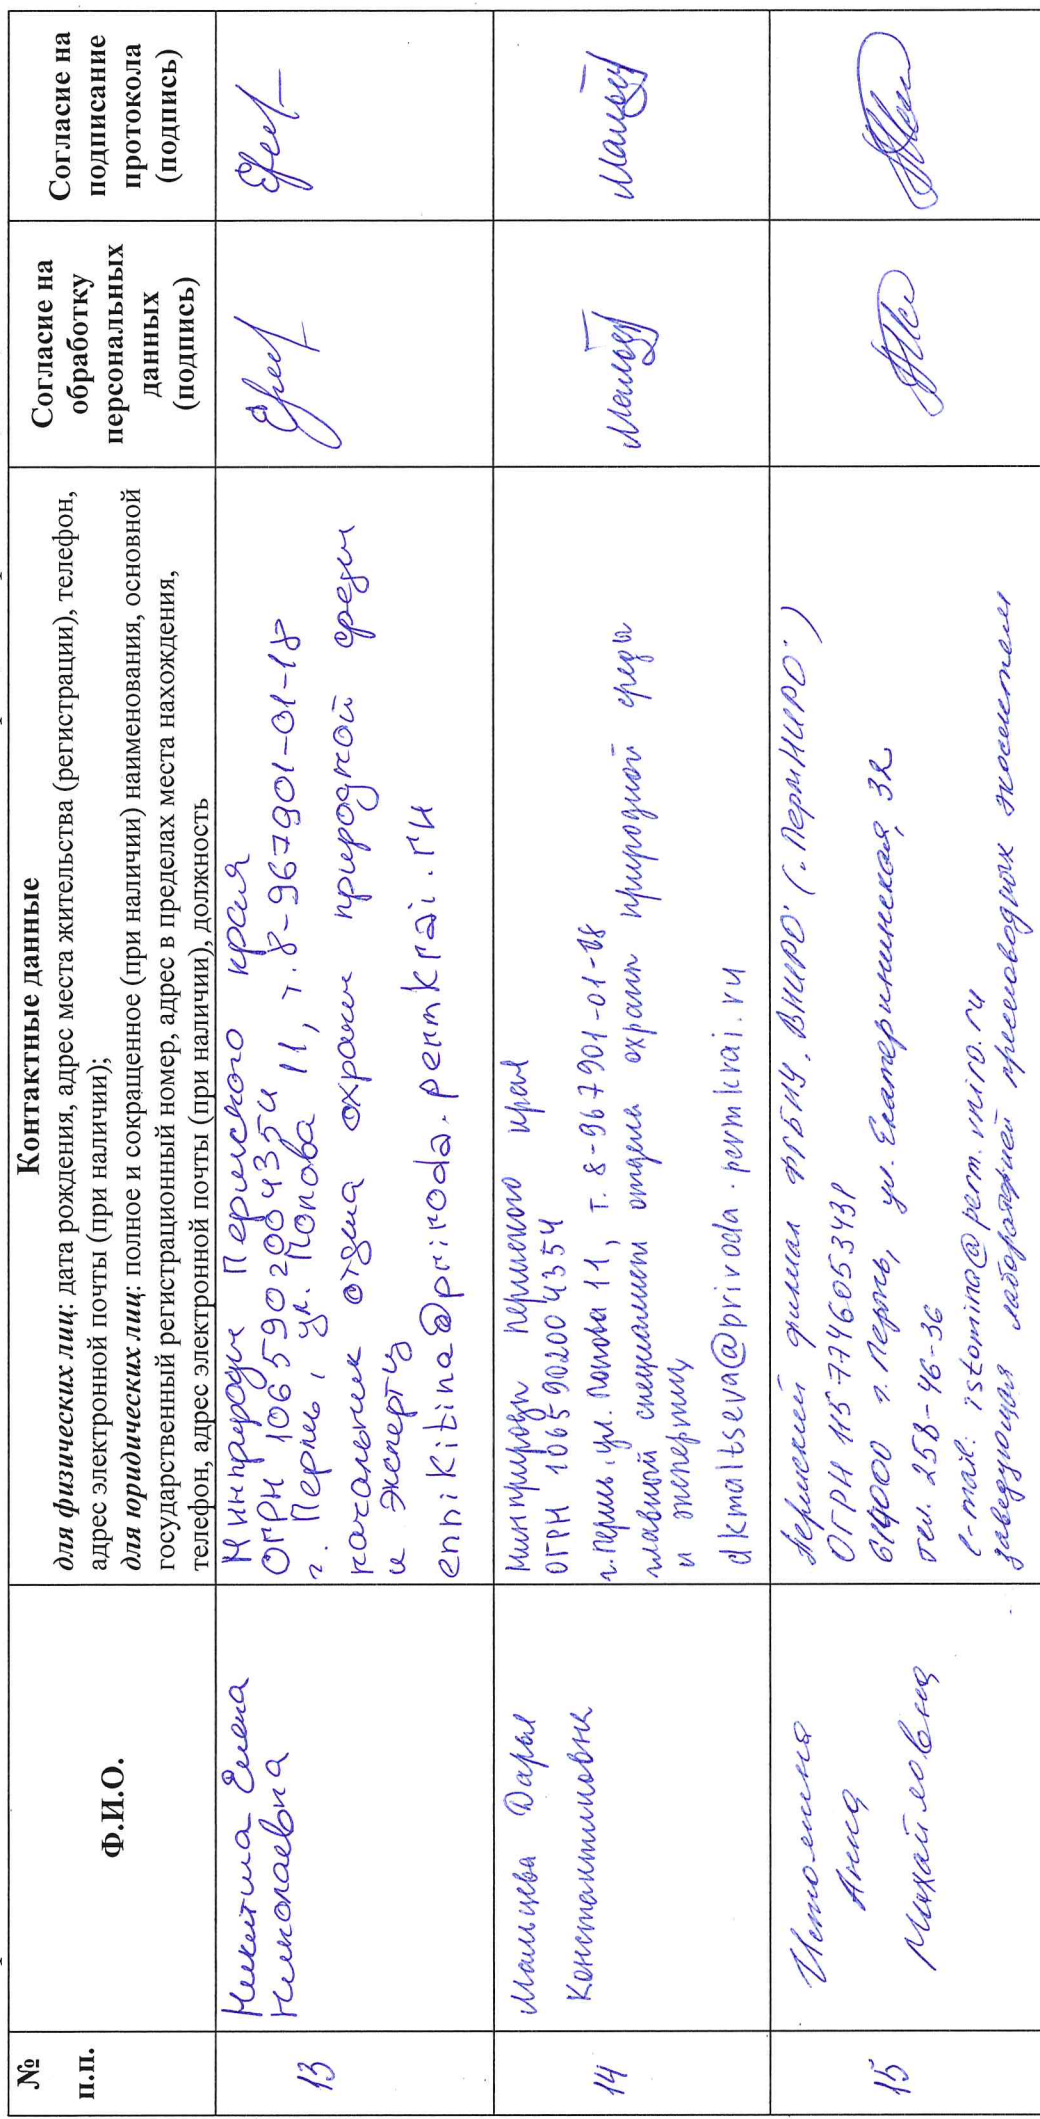 №
п.п.
Ф.И.О.
Контактные данные
для физических лиц: дата рождения, адрес места жительства (регистрации), телефон,
адрес электронной почты (при наличии);
для юридических лиц: полное и сокращенное (при наличии) наименования, основной
государственный регистрационный номер, адрес в пределах места нахождения,
телефон, адрес электронной почты (при наличии), должность
Согласие на
обработку
персональных
данных
(подпись)
Согласие на
подписание
протокола
(подпись)
13
Никитина Елена
Николаевна
Минприроды Пермского края
ОГРН 1065902004354
г. Пермь, ул. Попова 11, т. 8-967901-01-18
начальник отдела охраны природной среды
и экспертиз
ennikitina@priroda.permkrai.ru
14
Мальцева Дарья
Константиновна
Минприроды Пермского края
ОГРН 1065902004354
г. Пермь, ул. Попова 11, т. 8-967901-01-18
главный специалист отдела охраны природной среды
и экспертиз
dkmaltseva@priroda.permkrai.ru
15
Истомина
Анна
Михайловна
Пермский филиал ФГБНУ "ВНИРО" ("ПермНИРО")
ОГРН 1157746053431
614000 г. Пермь, ул. Екатерининская, 32
тел. 258-46-36
e-mail: istomina@perm.vniro.ru
заведующая лабораторией пресноводных экосистем